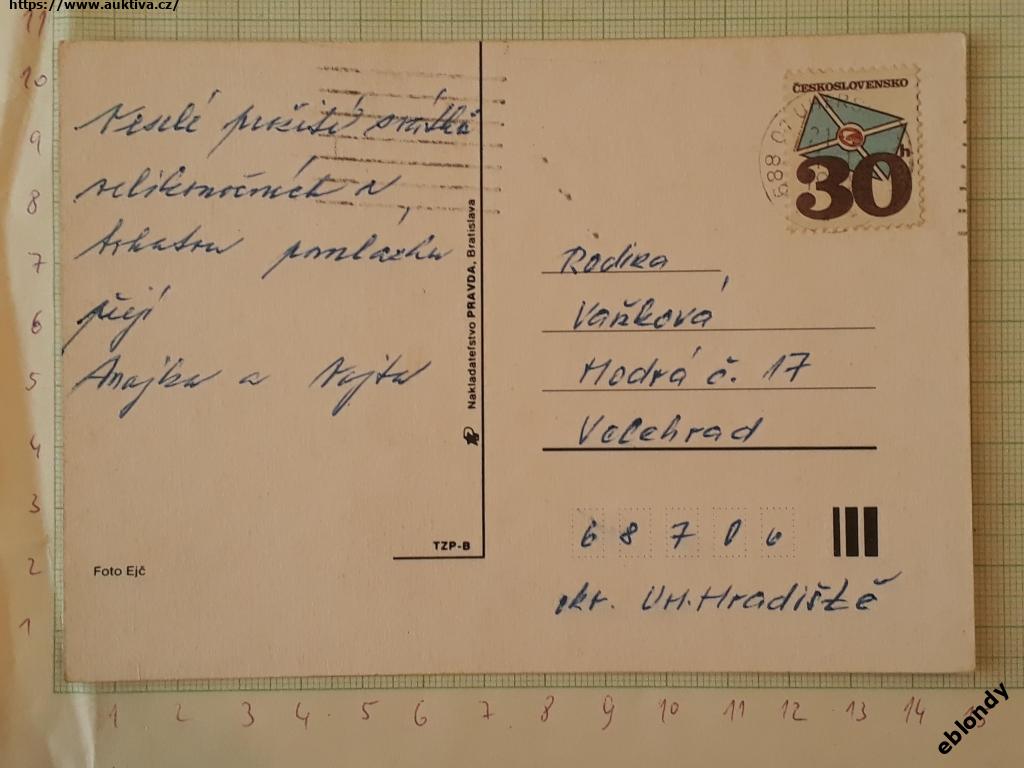 https://www.auktiva.cz/
Veselé prožití svátků
velikonočních a
bohatou pomlázku
přejí
a Vojta
Nakladateľstvo PRAVDA, Bratislava
TZP-B
Foto Ejč
ČESKOSLOVENSKO
30h
688 01 U
Rodina
Vaňková
Modrá č. 17
Velehrad
687 06
okr. Uh. Hradiště
11
10
9
8
7
6
5
4
3
2
1
1 2 3 4 5 6 7 8 9 10 11 12 13 14
eblondy